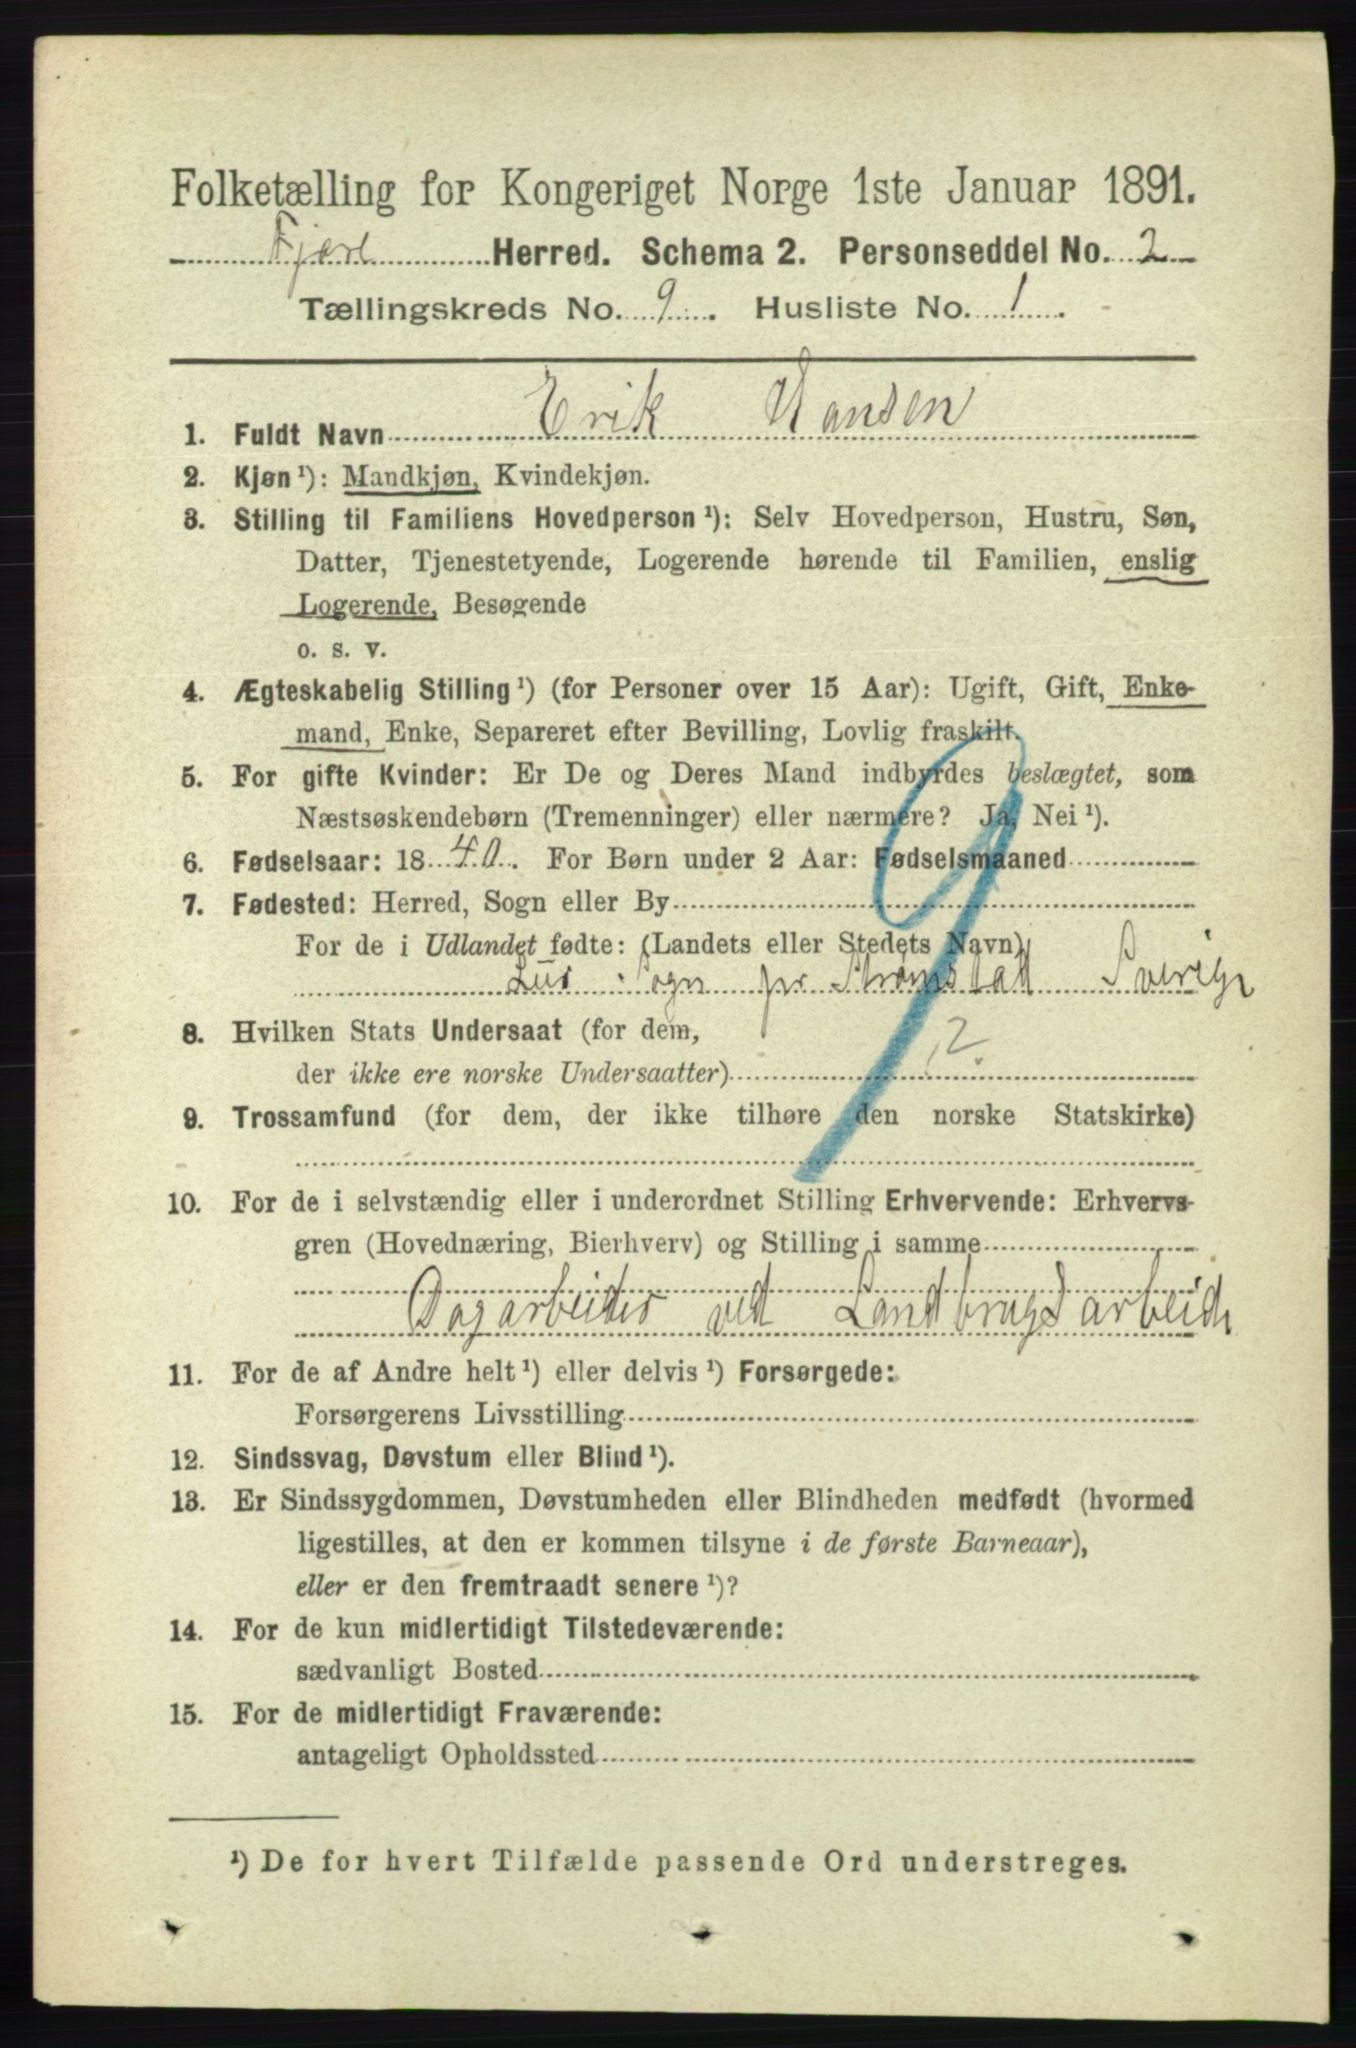 Folketælling for Kongeriget Norge 1ste Januar 1891.
Fjære Herred. Schema 2. Personseddel No. 2
Tællingskreds No. 9. Husliste No. 1.
1. Fuldt Navn Erik Hansen
2. Kjøn ¹): Mandkjøn, Kvindekjøn.
3. Stilling til Familiens Hovedperson ¹): Selv Hovedperson, Hustru, Søn,
Datter, Tjenestetyende, Logerende hørende til Familien, enslig
Logerende, Besøgende
o. s. v.
4. Ægteskabelig Stilling ¹) (for Personer over 15 Aar): Ugift, Gift, Enke-
mand, Enke, Separeret efter Bevilling, Lovlig fraskilt.
5. For gifte Kvinder: Er De og Deres Mand indbyrdes beslægtet, som
Næstsøskendebørn (Tremenninger) eller nærmere? Ja, Nei ¹).
6. Fødselsaar: 1840. For Børn under 2 Aar: Fødselsmaaned
7. Fødested: Herred, Sogn eller By
For de i Udlandet fødte: (Landets eller Stedets Navn)
Lur Sogn pr Strømstad Sverige
8. Hvilken Stats Undersaat (for dem,
der ikke ere norske Undersaatter) 2.
9
9. Trossamfund (for dem, der ikke tilhøre den norske Statskirke)
10. For de i selvstændig eller i underordnet Stilling Erhvervende: Erhvervs-
gren (Hovednæring, Bierhverv) og Stilling i samme
Dagarbeider ved Landbrugsarbeide
11. For de af Andre helt ¹) eller delvis ¹) Forsørgede:
Forsørgerens Livsstilling
12. Sindssvag, Døvstum eller Blind ¹).
13. Er Sindssygdommen, Døvstumheden eller Blindheden medfødt (hvormed
ligestilles, at den er kommen tilsyne i de første Barneaar),
eller er den fremtraadt senere ¹)?
14. For de kun midlertidigt Tilstedeværende:
sædvanligt Bosted
15. For de midlertidigt Fraværende:
antageligt Opholdssted
¹) De for hvert Tilfælde passende Ord understreges.